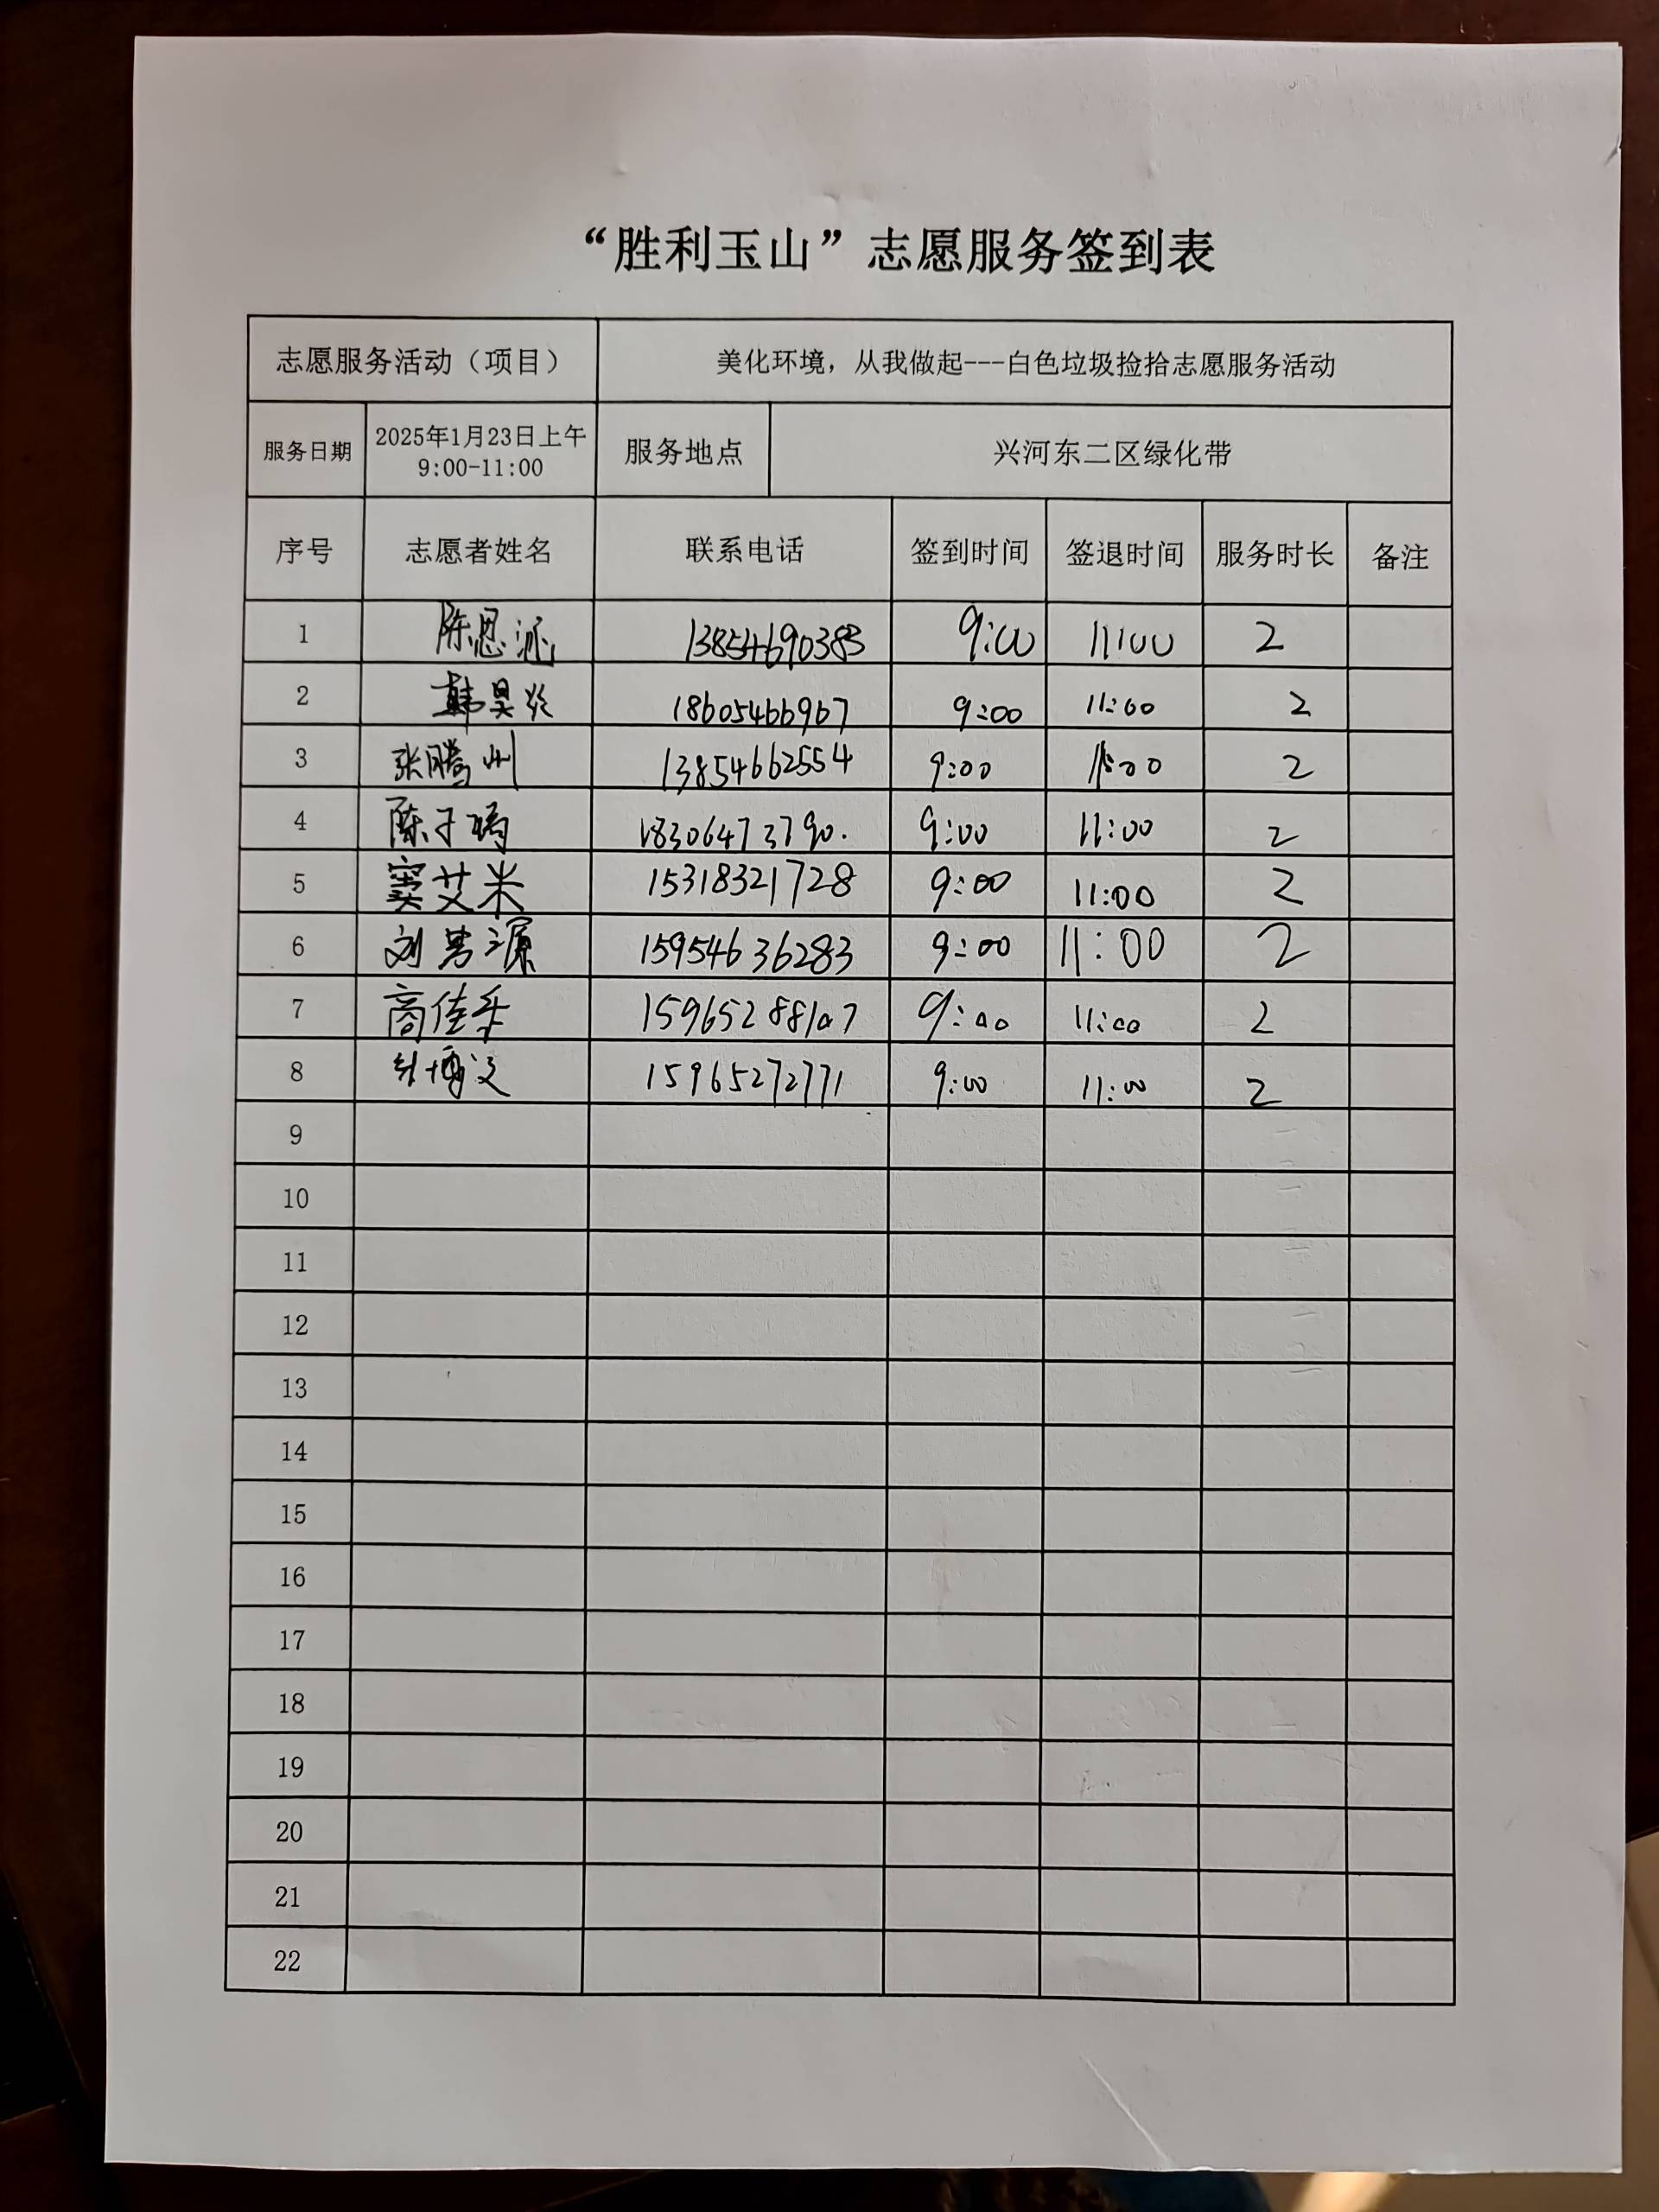 “胜利玉山”志愿服务签到表
志愿服务活动（项目） 美化环境，从我做起---白色垃圾捡拾志愿服务活动
服务日期 2025年1月23日上午 9:00-11:00 服务地点 兴河东二区绿化带
序号 志愿者姓名 联系电话 签到时间 签退时间 服务时长 备注
1 陈思 13854690383 9:00 11:00 2
2 韩昊 18605466967 9:00 11:00 2
3 张腾州 13854662554 9:00 11:00 2
4 陈子 18306473790. 9:00 11:00 2
5 窦艾米 15318321728 9:00 11:00 2
6 刘 源 15954636283 9:00 11:00 2
7 商佳乐 15965288107 9:00 11:00 2
8 博文 15965272771 9:00 11:00 2
9
10
11
12
13
14
15
16
17
18
19
20
21
22